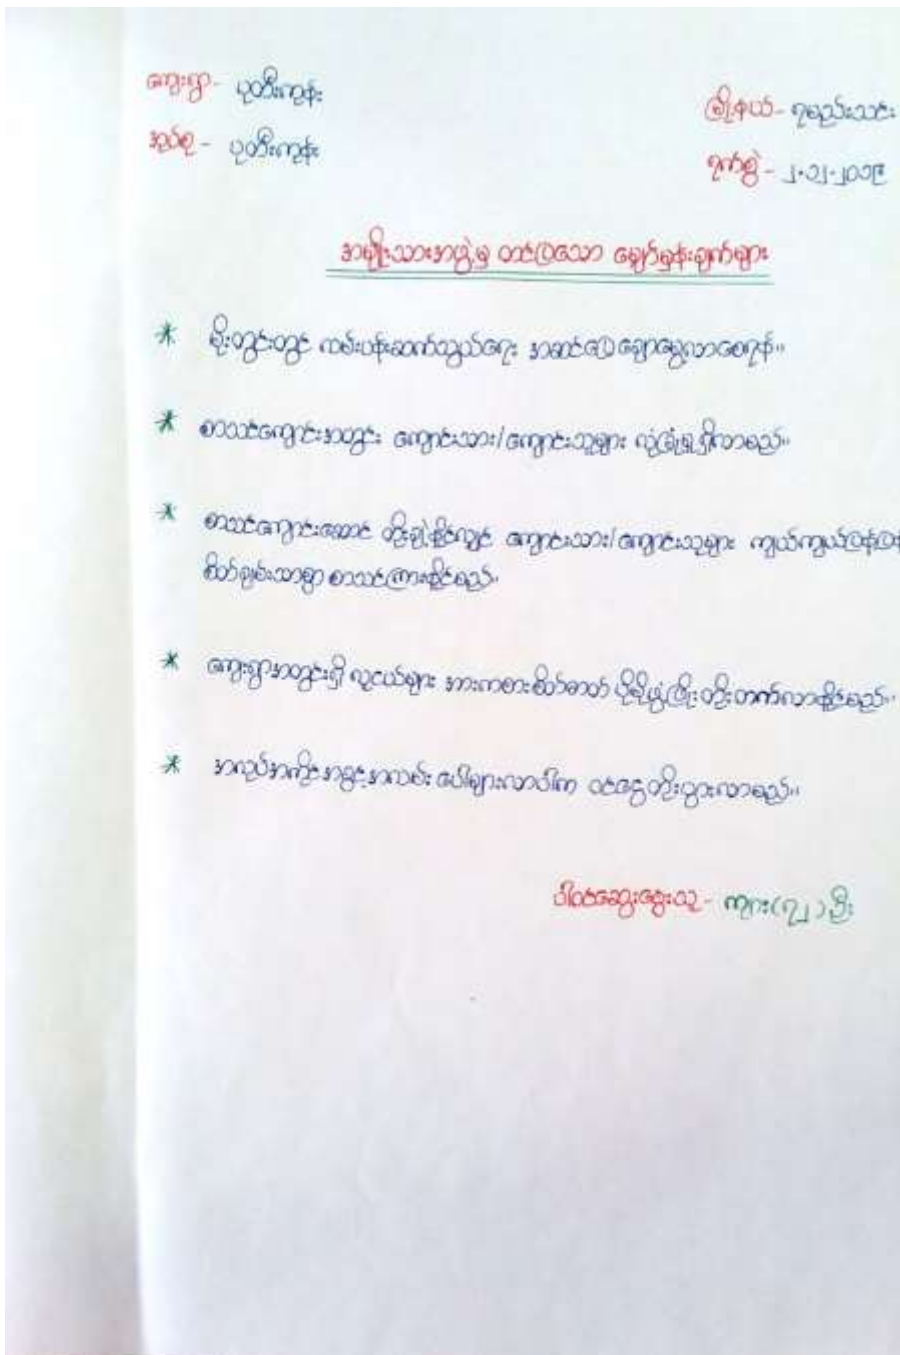 ကျေးရွာ - ပုတီးကုန်း
မြို့နယ် - ရမည်းသင်း
အုပ်စု - ပုတီးကုန်း
ရက်စွဲ - ၂.၁၂.၂၀၁၉
အမျိုးသားအဖွဲ့မှ တင်ပြသော မျှော်မှန်းချက်များ
* မိုးတွင်းတွင် လမ်းပန်းဆက်သွယ်ရေး အဆင်ပြေချောမွေ့လာစေရန်။
* စာသင်ကျောင်းအတွင်း ကျောင်းသား/ကျောင်းသူများ လုံခြုံမှုရှိလာမည်။
* စာသင်ကျောင်းဆောင် တိုးချဲ့နိုင်လျှင် ကျောင်းသား/ကျောင်းသူများ ကျယ်ကျယ်ပြန့်ပြန့်
စိတ်ချမ်းသာစွာ စာသင်ကြားနိုင်မည်။
* ကျေးရွာအတွင်းရှိ လူငယ်များ အားကစားစိတ်ဓာတ် ပိုမိုဖွံ့ဖြိုးတိုးတက်လာနိုင်မည်။
* အလုပ်အကိုင်အခွင့်အလမ်း ပေါများလာပါက ဝင်ငွေတိုးပွားလာမည်။
ပါဝင်ဆွေးနွေးသူ - ကျား(၇၂)ဦး